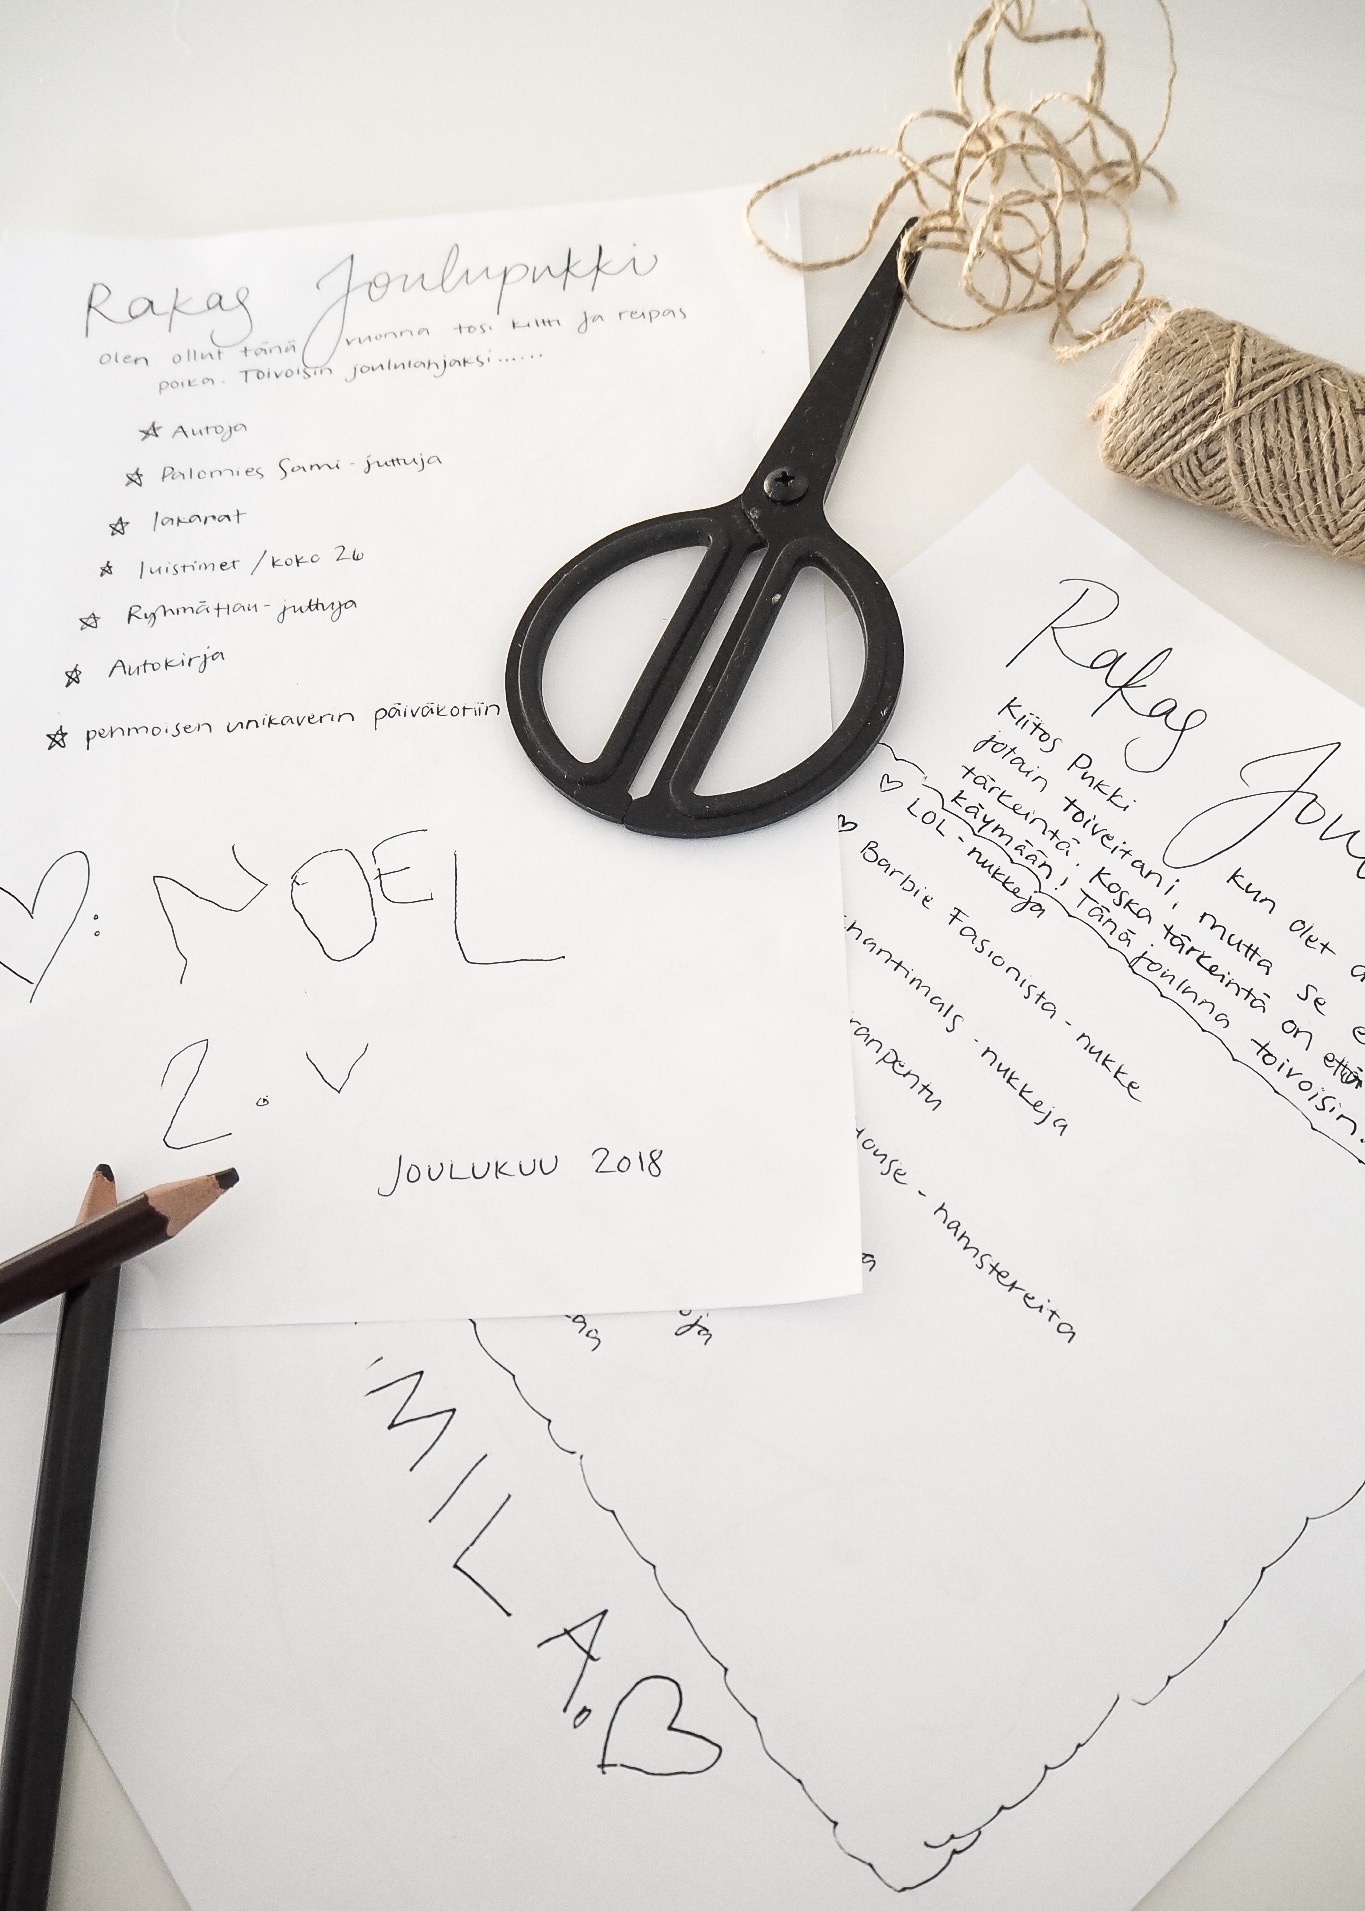 Rakas Joulupukki
olen ollut tänä vuonna tosi kiltti ja reipas
poika. Toivoisin joululahjaksi......
☆ Autoja
☆ Palomies Sami-juttuja
☆ lakanat
☆ luistimet / koko 26
☆ Ryhmä Hau-juttuja
☆ Autokirja
☆ pehmoisen unikaverin päiväkotiin
♡: NOEL
2.v
JOULUKUU 2018
Rakas Jou
Kiitos Pukki kun olet
jotain toiveitani, mutta se
tärkeintä. Koska tärkeintä on että
käymään! Tänä jouluna toivoisin.
♡ LOL-nukkeja
♡ Barbie Fasionista-nukke
hantimals-nukkeja
ranpentu
House-hamstereita
oja
MILA. ♡